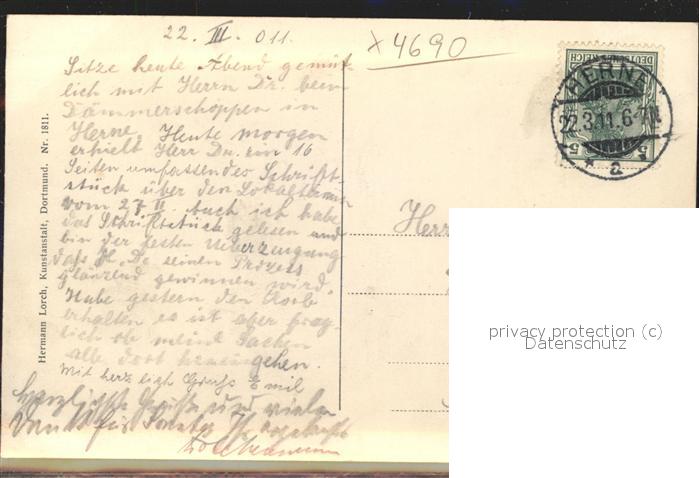 22. III. 011.
x 4690
Sitze heute Abend gemüt-
lich mit Herrn Dr. beim
Dämmerschoppen in
Herne. Heute morgen
erhielt Herr Dr. ein 16
Seiten umfassendes Schrift-
stück über den Lokaltermin
vom 27 II. Auch ich habe
das Schriftstück gelesen und
bin der festen Ueberzeugung
daß H. Dr. seinen Prozess
glänzend gewinnen wird.
Habe gestern den Korb
erhalten es ist aber frag-
lich ob meine Sachen
alle dort hineingehen.
Mit herzlich Gruß Emil
Herzliche Grüße und vielen
Dank für
Hermann Lorch, Kunstanstalt, Dortmund. Nr. 1811.
DEUTSCHES REICH
HERNE
22.3.11. 6-7N.
* a
5 5
Herr
privacy protection (c)
Datenschutz